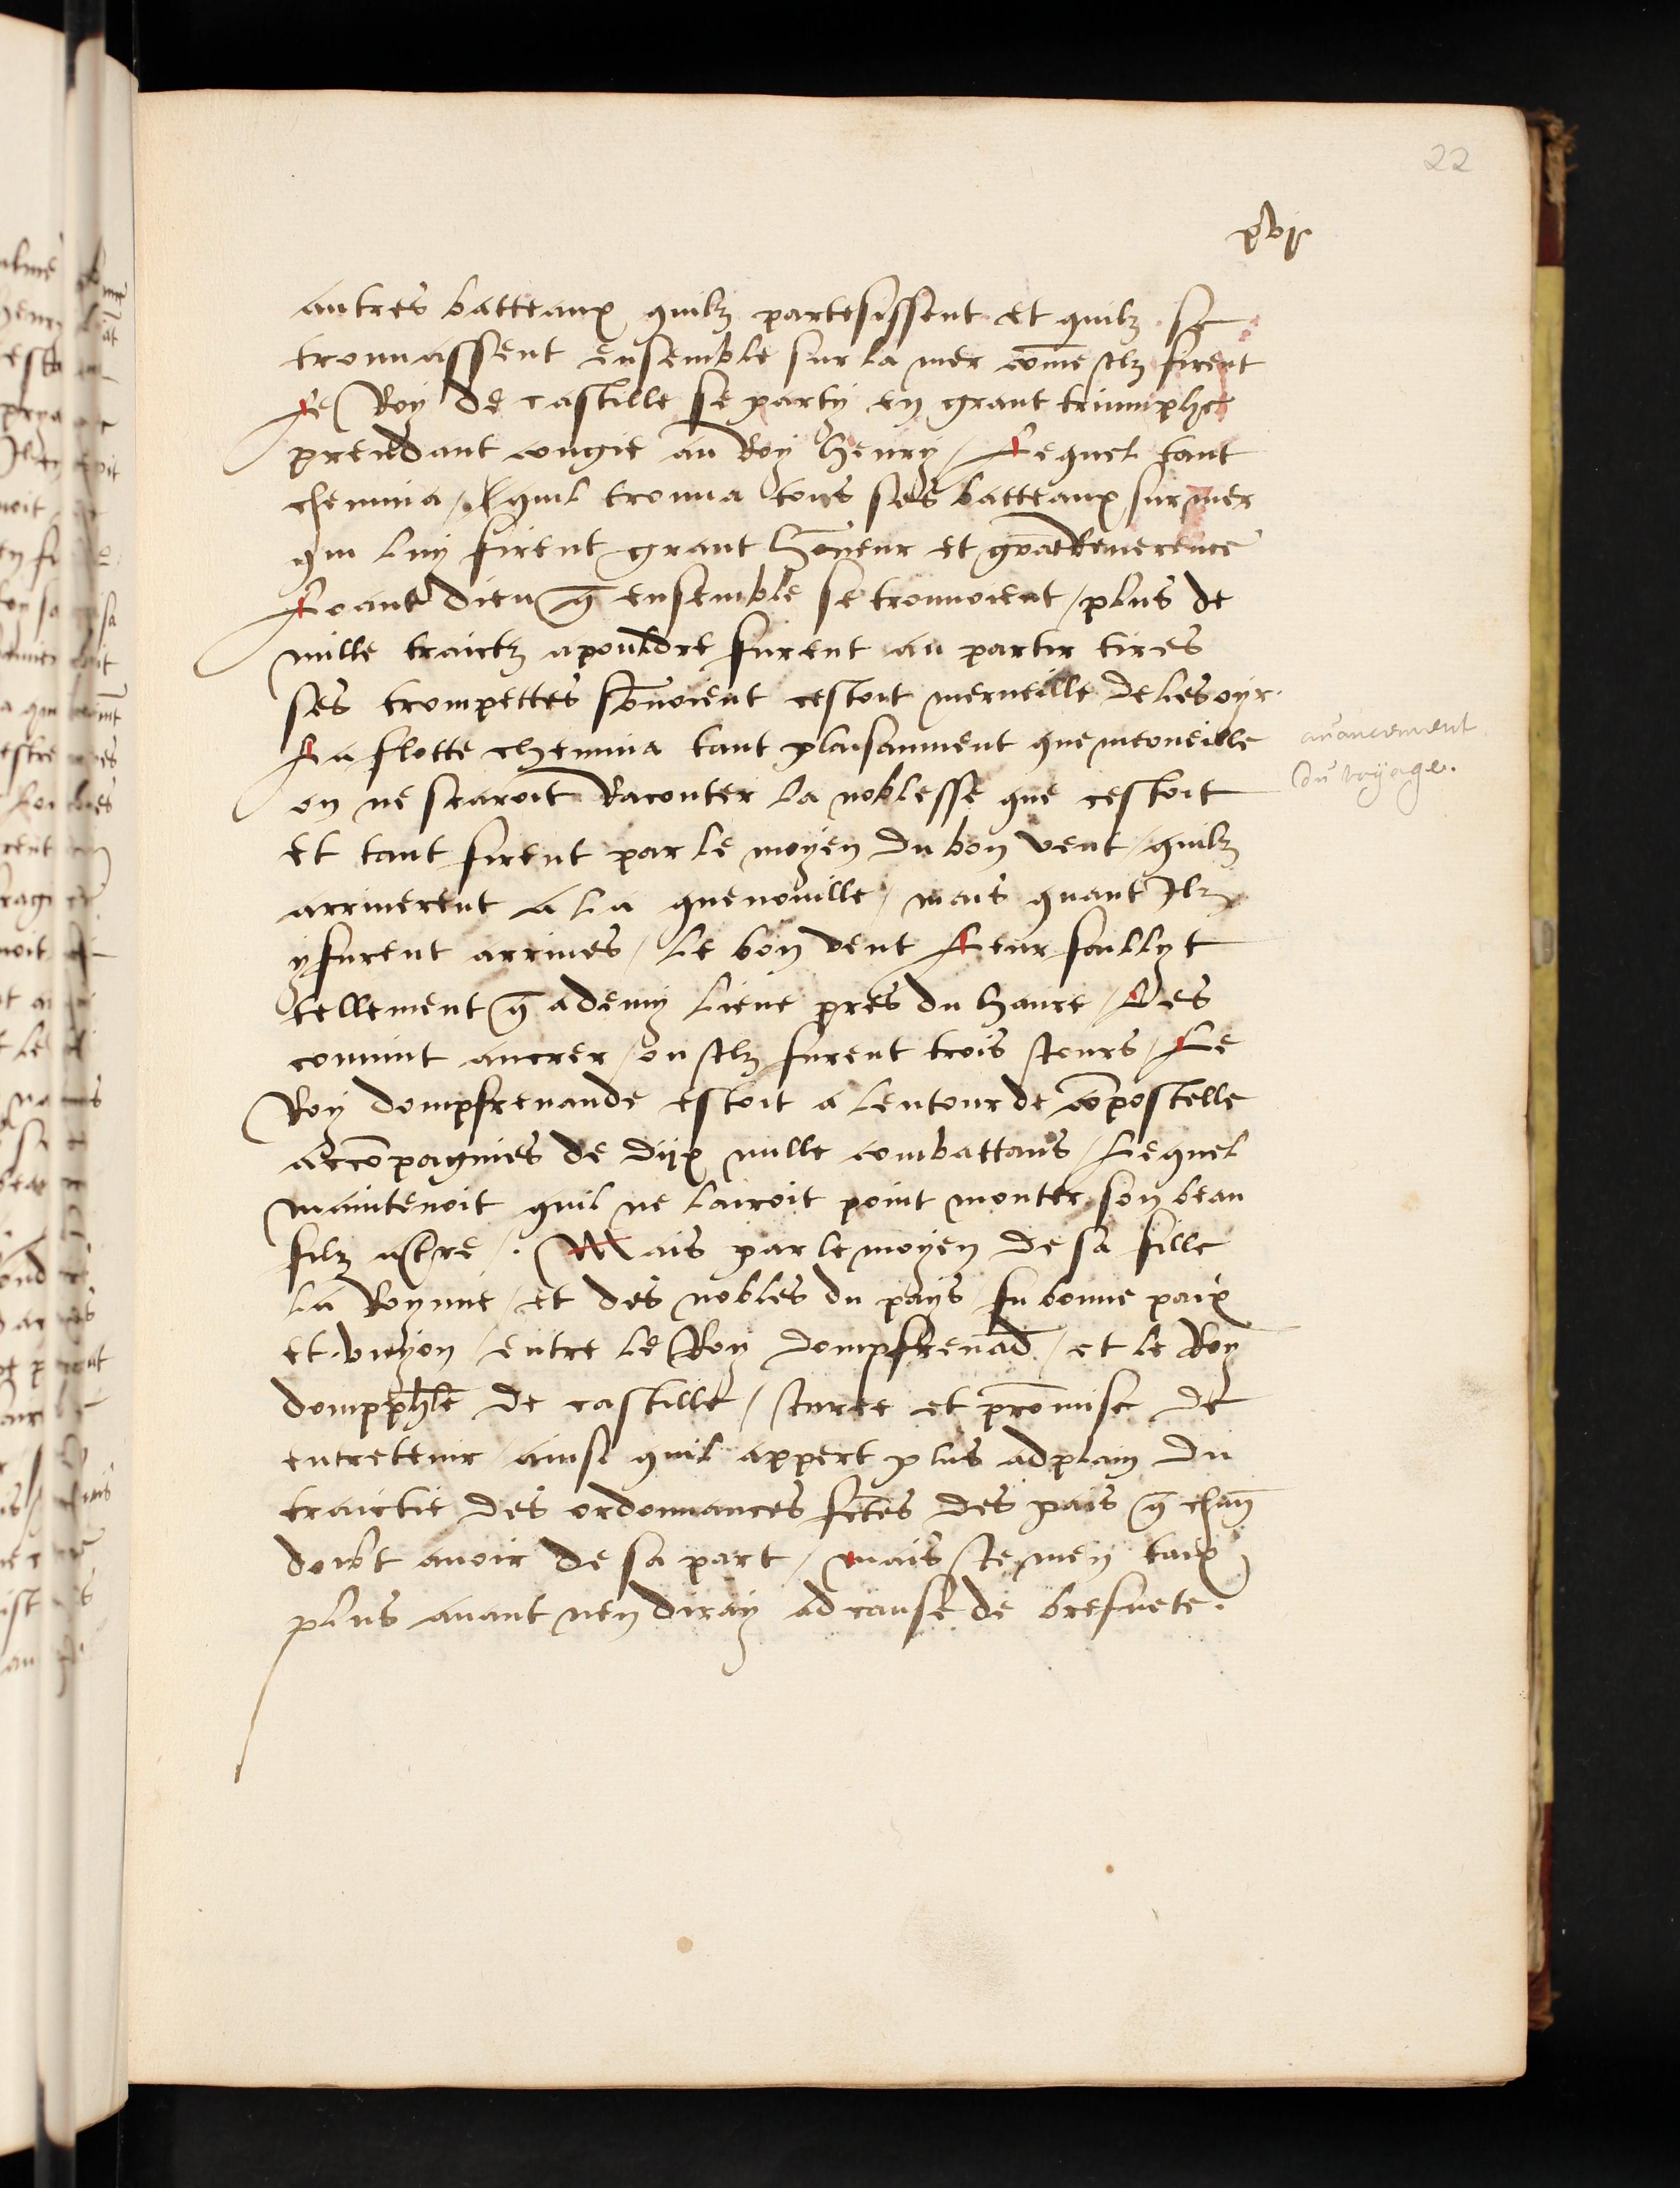 22
xvii
autres batteaux quilz partesissent et quilz se
trouuassent ensemble sur la mer cōme ilz firent
Le Roy de castille se party en grant triumphe
prendant congie au Roy henry / Lequel tant
chemina / quil trouua tous ses batteaux sur mer
qui luy firent grant hōneur et grāt Reuerence
Loant dieu q̄ ensemble se trouuoient / plus de
mille traictz a pouldre furent au partir tires
ses trompettes sōnoient cestoit merueille de les oyr.
La flotte chemina tant plaisamment que merueille
on ne scaroit Raconter la noblesse que cestoit
et tant firent par le moyen du bon vent / quilz
arriuerent a la quenouille / mais quant Ilz
y furent arriues / le bon vent Leur faillyt
tellement q̄ a demy lieue pres du haure / Les
conuint ancrer / ou ilz furent trois iours / Le
Roy domp frenande estoit a lentour de cōpostelle
accōpagnies de diix mille combattans / Lequel
maintenoit quil ne lairoit point monter son beau
filz a tre / . Mais par le moyen de sa fille
la Roynne / et des nobles du pays / fu bonne paix
et vnyon / entre le Roy domp frenād / et le Roy
domp phle de castille / iuree et promise de
entretenir / ainsi quil appert plus ad plain du
traictie des ordonnances fctes des pais q̄ chūn
doibt auoir de sa part / mais ie men taix
plus auant nen diray ad cause de brefuete.
auancement
du voyage.